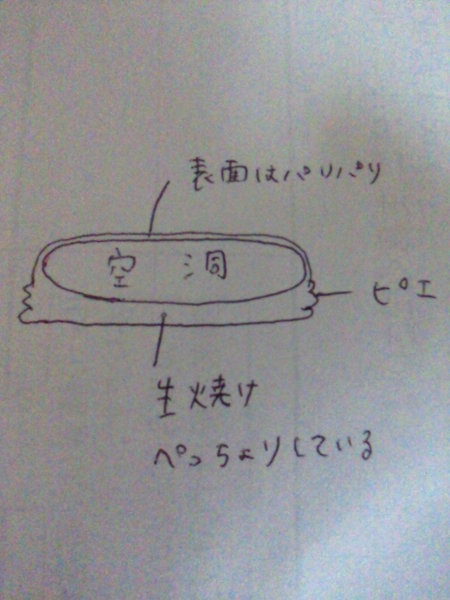 表面はパリパリ
空洞
ピエ
生焼け
ペっちょりしている